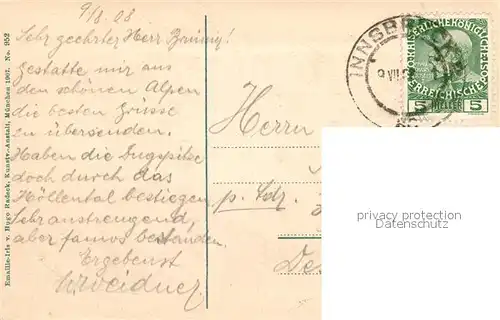 9/8.08
Sehr geehrter Herr
Gestatte mir aus
den schönen Alpen
die besten Grüsse
zu übersenden.
Haben die Zugspitze
doch durch das
Höllental bestiegen
Sehr anstrengend,
aber famos bestanden.
Ergebenst
Emaille-Iris v. Hugo Radeck, Kunstv.-Anstalt, München 1907. No. 952
INNSBRUCK
KAISERLICHEKÖNIGLICHE
ÖSTERREICHISCHEPOST
5 HELLER 5
Herrn
p. Adr.
privacy protection
Datenschutz